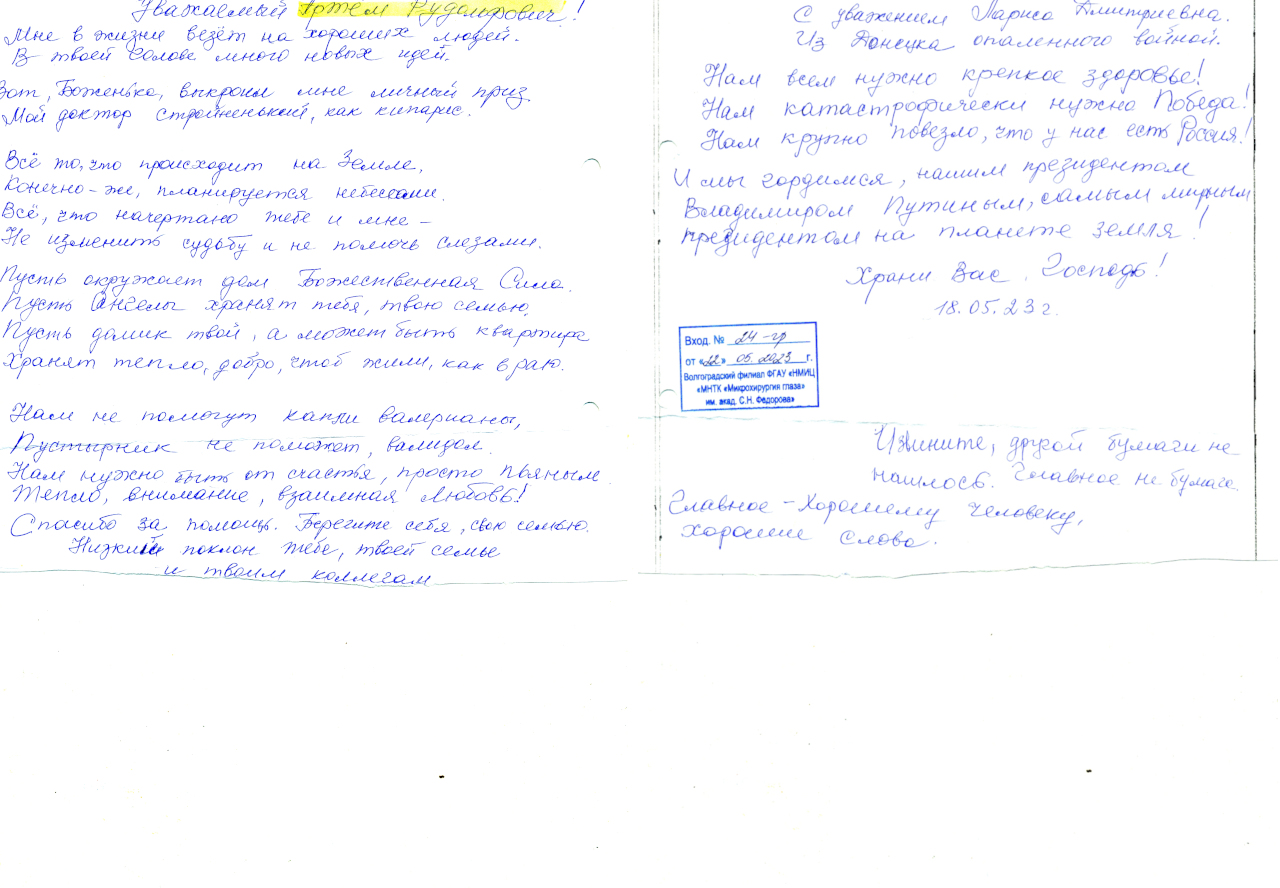 Уважаемый Артем Рудольфович!
Мне в жизни везёт на хороших людей.
В твоей голове много новых идей.
Вот, Боженька, выкроил мне личный приз
Мой доктор стройненький, как кипарис.
Всё то, что происходит на Земле,
Конечно-же, планируется небесами.
Всё, что начертано тебе и мне –
Не изменить судьбу и не помочь слезами.
Пусть окружает дом Божественная Сила.
Пусть Ангелы хранят тебя, твою семью.
Пусть домик твой, а может быть квартира
Хранят тепло, добро, чтоб жили, как в раю.
Нам не помогут капли валерианы,
Пустырник не поможет, валидол.
Нам нужно быть от счастья, просто пьяным
Тепло, внимание, взаимная Любовь!
Спасибо за помощь. Берегите себя, свою семью.
Низкий поклон тебе, твоей семье
и твоим коллегам
С уважением Лариса Дмитриевна.
Из Донецка опаленного войной.
Нам всем нужно крепкое здоровье!
Нам катастрофически нужна Победа!
Нам крупно повезло, что у нас есть Россия!
И мы гордимся, нашим президентом
Владимиром Путиным, самым мирным
президентом на планете Земля!
Храни Вас, Господь!
18.05.23 г.
Вход. № 24-гр
от «22» 05.2023 г.
Волгоградский филиал ФГАУ «НМИЦ
«МНТК «Микрохирургия глаза»
им. акад. С.Н. Федорова»
Извините, другой бумаги не
нашлось. Главное не бумага.
Главное – Хорошему человеку,
хорошие слова.